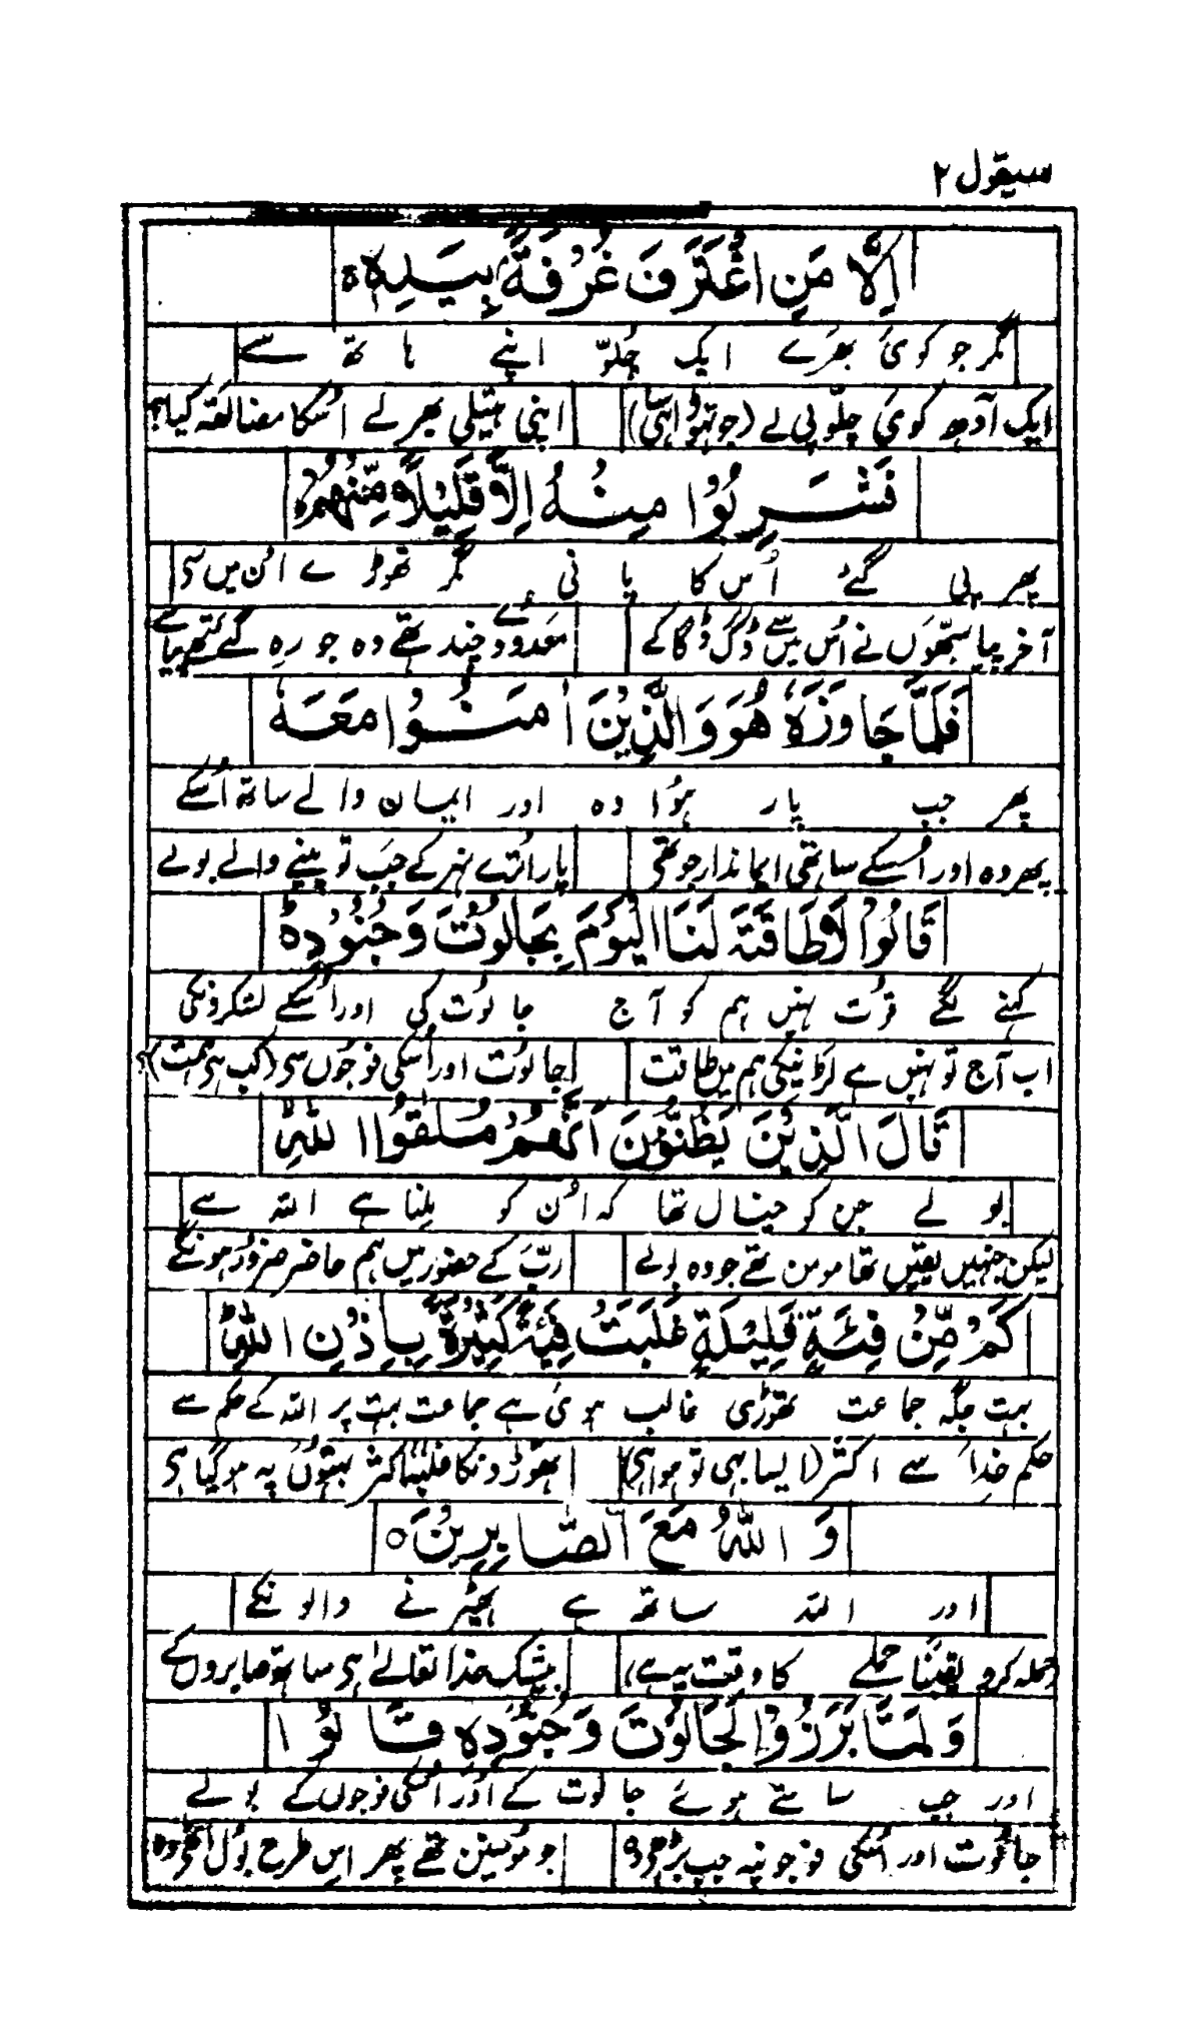 سیقول ۲
اِلَّا مَنِ اغْتَرَفَ غُرْفَةً بِيَدِهٖ
مگر جو کوئی بھرے ایک چلّو اپنے ہاتھ سے
ایک آدھ کوئی چلّو پی لے (جو تھوڑا ہی سا) اپنی ہتیلی بھر لے اُسکا مضائقہ کیا؟
فَشَرِبُوْا مِنْهُ اِلَّا قَلِيْلًا مِّنْهُمْ
پھر پی گئے اُس کا پانی مگر تھوڑے اُن میں سی
آخر پیا سبھّوں نے اُس میں سے ڈگ ڈگا کے معدودے چند تھے وہ جو رہ گئے تھے پیاسے
فَلَمَّا جَاوَزَهٗ هُوَ وَالَّذِيْنَ اٰمَنُوْا مَعَهٗ
پھر جب پار ہُوا وہ اور ایمان والے ساتھ اُسکے
پھر وہ اور اُسکے ساتھی ایماندار جو تھی پار اُترے نہر کے جب تو پینے والے بولے
قَالُوْا لَا طَاقَةَ لَنَا الْيَوْمَ بِجَالُوْتَ وَجُنُوْدِهٖ
کہنے لگے قوّت نہیں ہم کو آج جالوُت کی اور اُسکے لشکرونکی
اب آج تو نہیں ہے لڑنیکی ہم میں طاقت جالوُت اور اُسکی فوجوں سی (کب ہی ہمت)؟
قَالَ الَّذِيْنَ يَظُنُّوْنَ اَنَّهُمْ مُلٰقُوا اللّٰهِ
بولے جن کو خیال تھا کہ اُن کو ملنا ہے اللہ سے
لیکن جنہیں یقیں تھا مومن تھے جو وہ بولے ربّ کے حضور میں ہم حاضر ضرور ہونگے
كَمْ مِّنْ فِئَةٍ قَلِيْلَةٍ غَلَبَتْ فِئَةً كَثِيْرَةً بِاِذْنِ اللّٰهِ
بہت جگہ جماعت تھوڑی غالب ہوئی ہے جماعت بہت پر اللہ کے حکم سے
حکم خدا سے اکثر (ایسا ہی تو ہوا ہی) تھوڑونکا غلبہ اکثر بہتوں پہ ہو گیا ہی
وَاللّٰهُ مَعَ الصَّابِرِيْنَ ۝
اور اللہ ساتھ ہے ٹھیرنے والونکے
حملہ کرو یقینًا حملے کا وقت یہ ہے، بیشک خدا تعالےٰ ہی ساتھ صابروں کے
وَلَمَّا بَرَزُوْا لِجَالُوْتَ وَجُنُوْدِهٖ قَالُوْا
اور جب سامنے ہوئے جالوت کے اور اُسکی فوجوں کے بولے
جالوُت اور اُسکی فوجونپہ جب بڑھے وہ جو مومنین تھے پھر اس طرح بول اُٹھے وہ